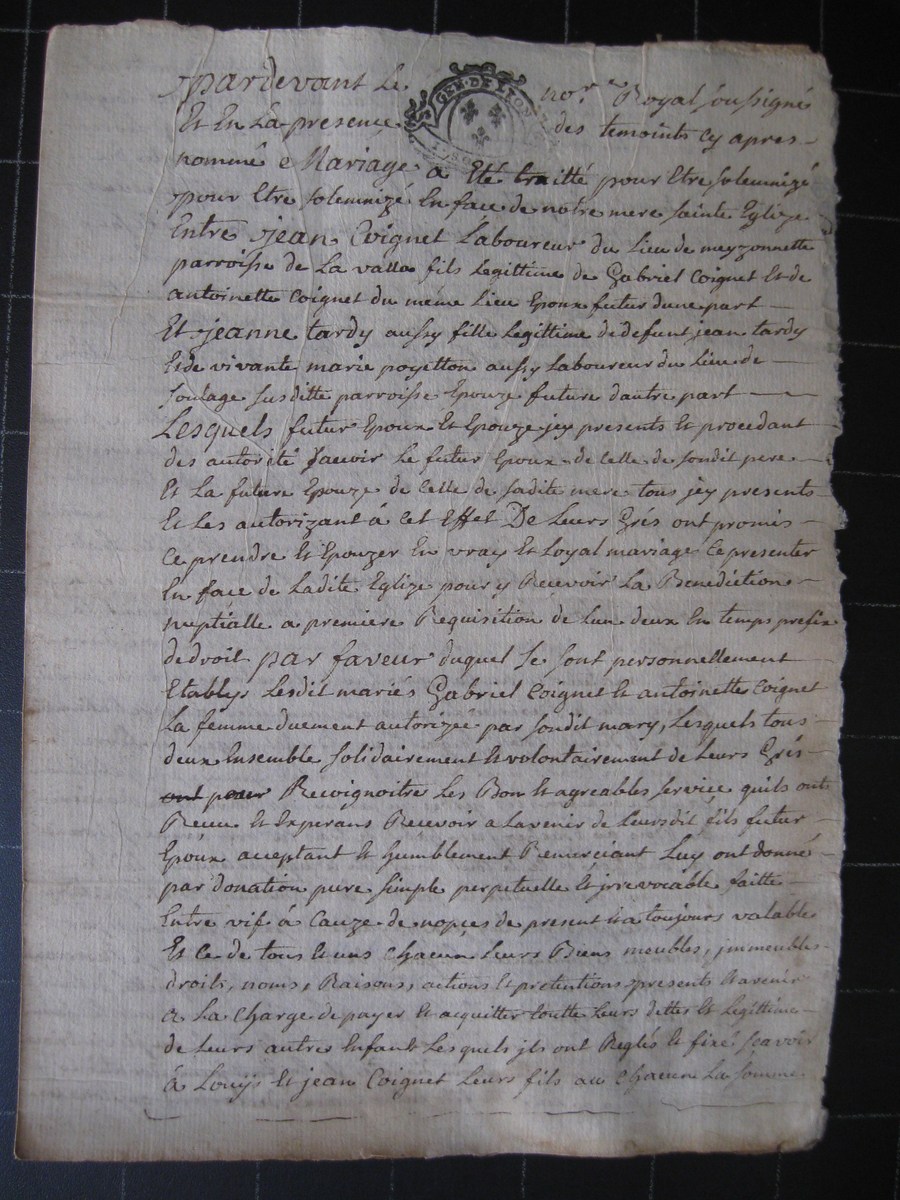 pardevant Le no.re Royal soussigné
GEN. DE LYON
Et En La presence des temoints cy apres
nommé e Mariage a Eté traitté pour Etre solemnizé
pour Etre solemnizé En face de notre mere sainte Eglize
Entre jean Coignet Laboureur du Lieu de meyzonnette
parroisse de La valla fils Legittime de Gabriel Coignet Et de
antoinette Coignet du méme Lieu Epoux futur dune part
Et jeanne tardy aussy fille Legittime de defunt jean tardy
Et de vivante marie poyetton aussy Laboureur du Lieu de
soulage susditte parroisse Epouze future dautre part
Lesquels futur Epoux Et Epouze jcy presents Et procedant
des autorité scavoir Le futur Epoux de Celle de sondit pere
Et La future Epouze de Celle de sadite mere tous jcy presents
Et Les autorizant á Cet Effet De Leurs Grés ont promis
Ce prendre Et Epouzer En vray Et Loyal mariage Ce presenter
En face de Ladite Eglize pour y Recevoir La Benediction
nuptialle a premiere Requisition de Lun deux En temps prefix
de droit par faveur duquel se sont personnellement
Etablys Lesdit mariés Gabriel Coignet Et antoinette Coignet
La femme duement autorizée par sondit mary, Lesquels tous
deux Ensemble solidairement Et volontairement de Leurs Grés
ont pour Recoignoitre Les Bon Et agreables service quils ont
Receu Et Experans Recevoir a Lavenir de Leursdit fils futur
Epoux acceptant Et humblement Remerciant Luy ont donné
par donation pure simple perpetuelle Et jrrevocable faitte
Entre vif á Cauze de nopces de present Et a toujours valable
Et Ce de tous Et uns Chacun Leurs Biens meubles, jmmeubles
droits, noms, Raisons, actions Et pretentions presents Et avenir
a La Charge de payer Et acquitter toutte Leurs dettes Et Legittime
de Leurs autres Enfant Lesquels jls ont Reglés Et fixé scavoir
á Louijs Et jean Coignet Leurs fils au Chacun La somme